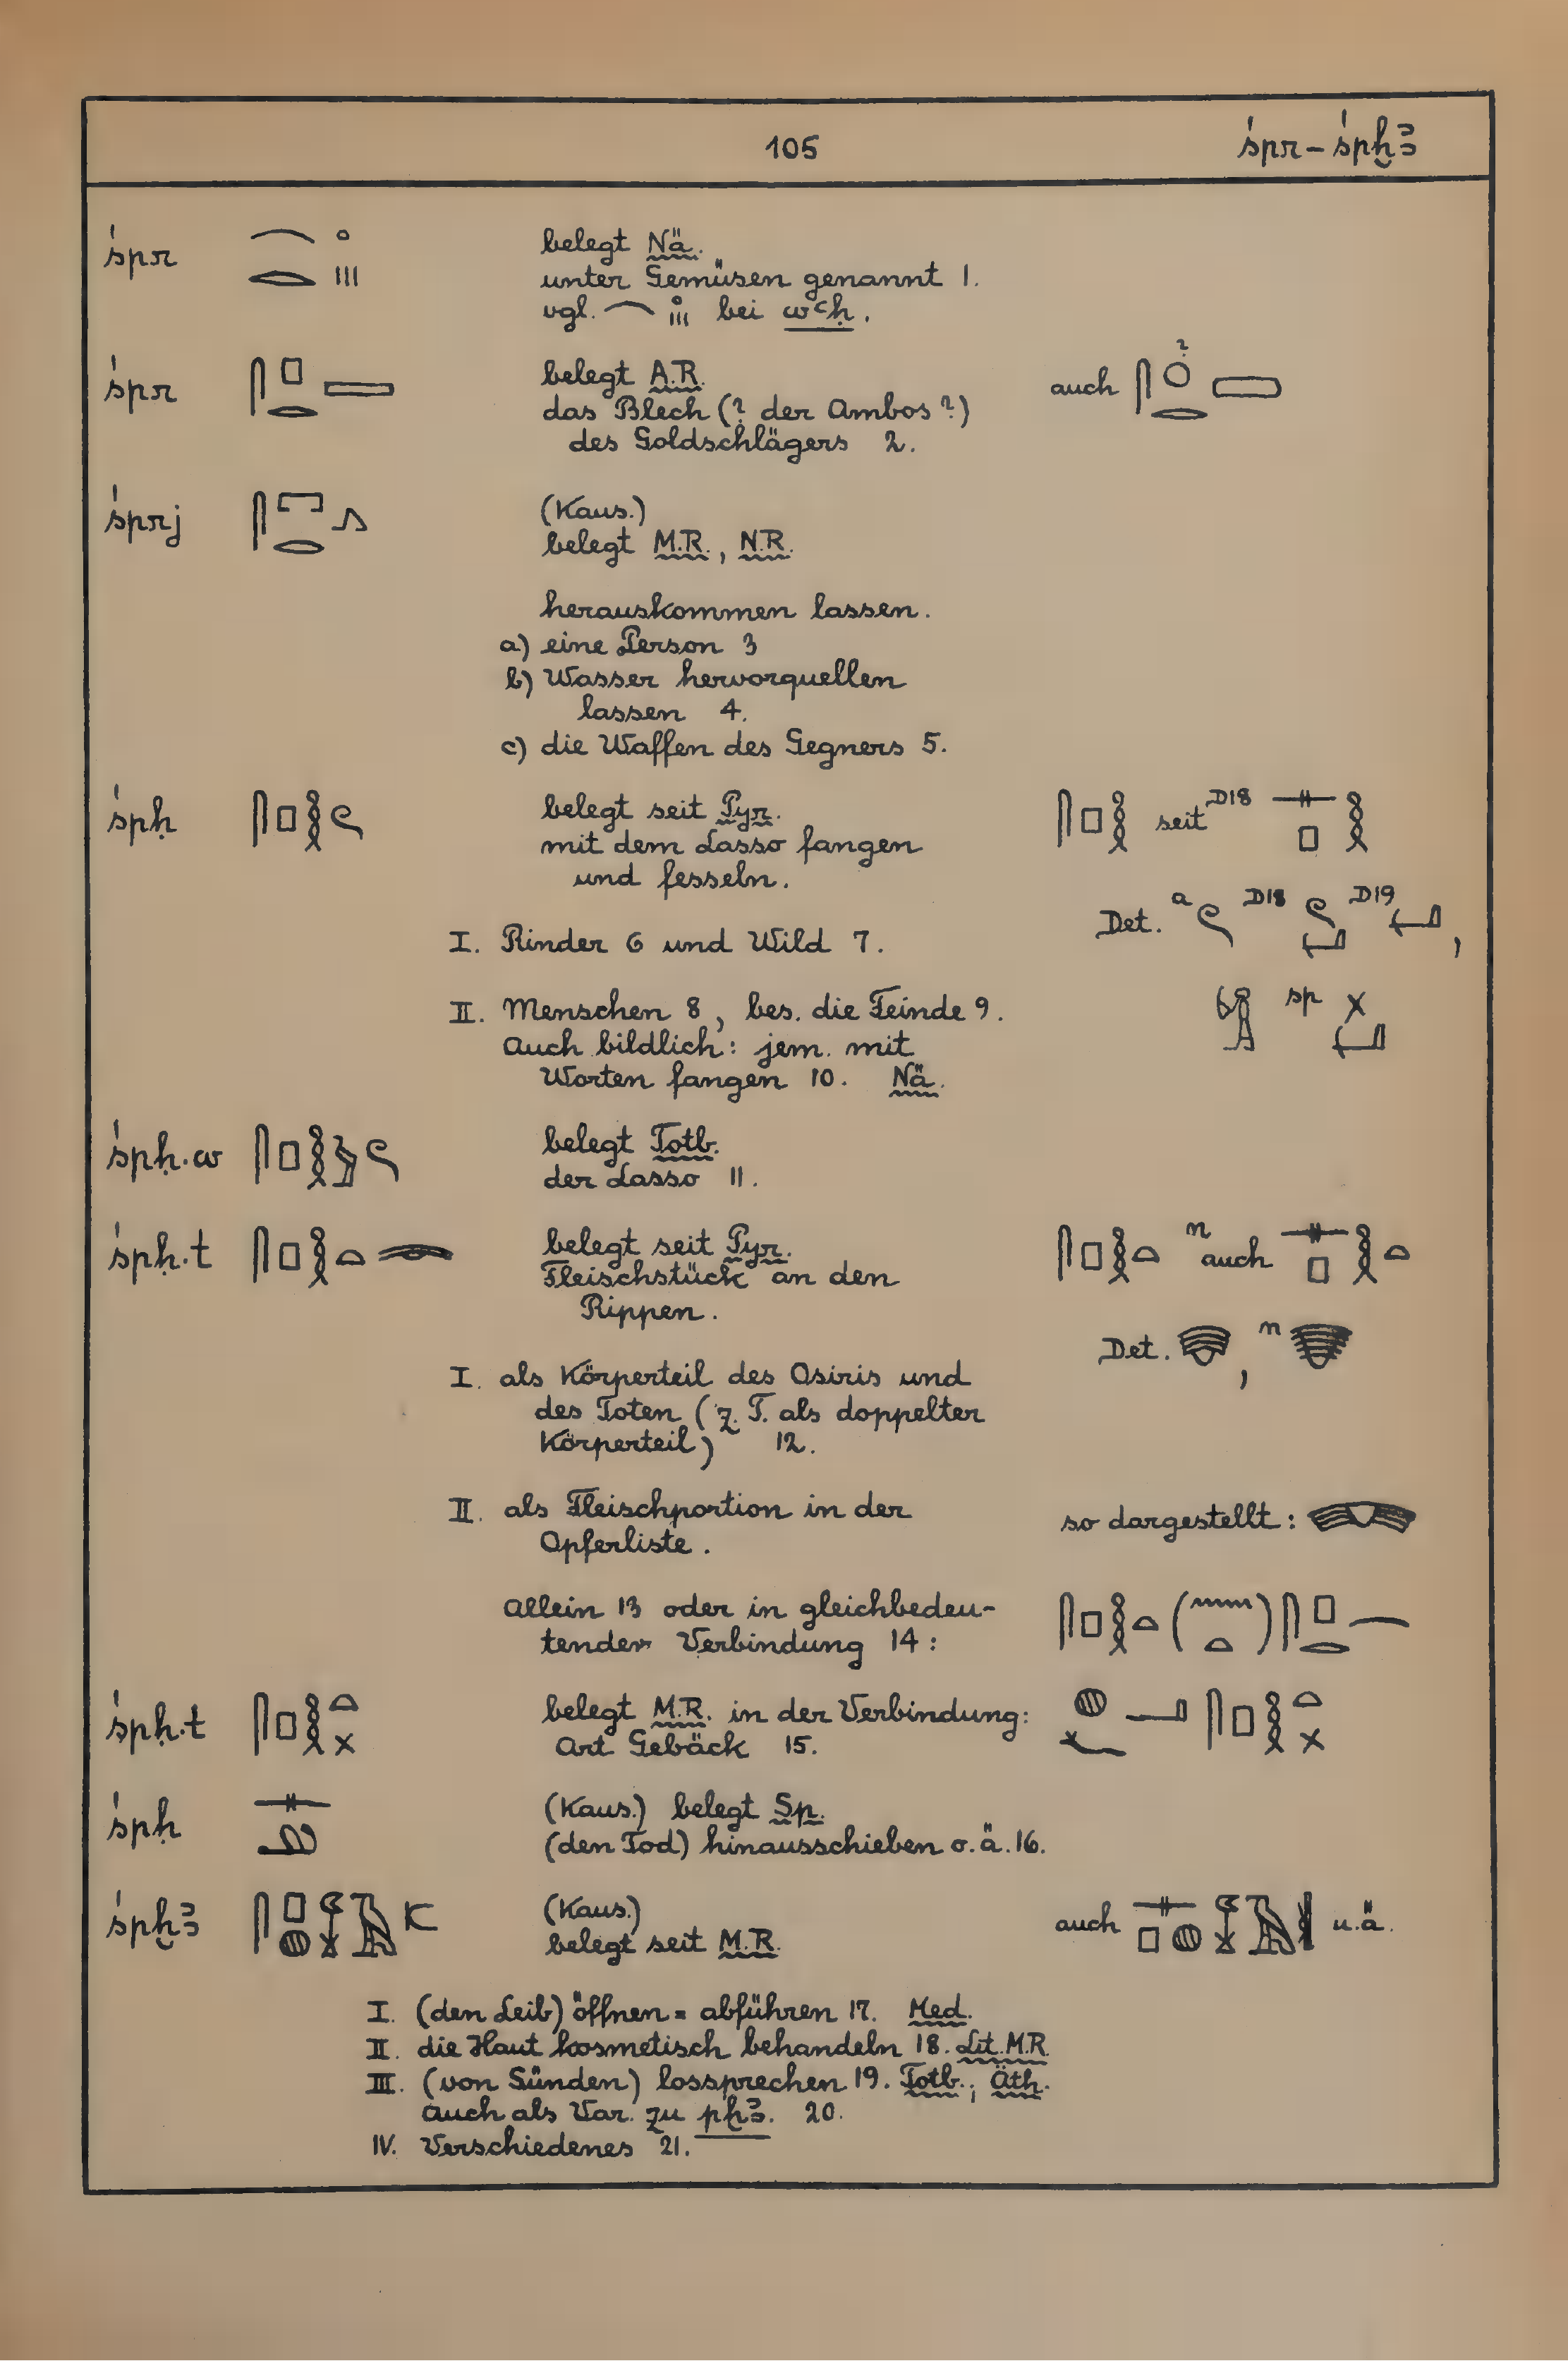 105 śpr – śpẖꜣ
śpr belegt Nä.
unter Gemüsen genannt 1.
vgl. bei wꜥḥ.
śpr belegt A.R. auch ?
das Blech (? der Ambos?)
des Goldschlägers 2.
śprj (Kaus.)
belegt M.R., N.R.
herauskommen lassen.
a) eine Person 3
b) Wasser hervorquellen
lassen 4.
c) die Waffen des Gegners 5.
śpḥ belegt seit Pyr. seit D18
mit dem Lasso fangen
und fesseln.
Det. a D18 D19 ,
I. Rinder 6 und Wild 7.
II. Menschen 8, bes. die Feinde 9. sp
Auch bildlich: jem. mit
Worten fangen 10. Nä.
śpḥ.w belegt Totb.
der Lasso 11.
śpḥ.t belegt seit Pyr. n auch
Fleischstück an den
Rippen.
Det. , n
I. als Körperteil des Osiris und
des Toten (z.T. als doppelter
Körperteil) 12.
II. als Fleischportion in der so dargestellt:
Opferliste.
Allein 13 oder in gleichbedeu-
tender Verbindung 14:
śpḥ.t belegt M.R. in der Verbindung:
Art Gebäck 15.
śpḥ (Kaus.) belegt Sp.
(den Tod) hinausschieben o.ä. 16.
śpẖꜣ (Kaus.) auch u.ä.
belegt seit M.R.
I. (den Leib) öffnen = abführen 17. Med.
II. die Haut kosmetisch behandeln 18. Lit. M.R.
III. (von Sünden) lossprechen 19. Totb., Äth.
Auch als Var. zu pẖꜣ. 20.
IV. Verschiedenes 21.